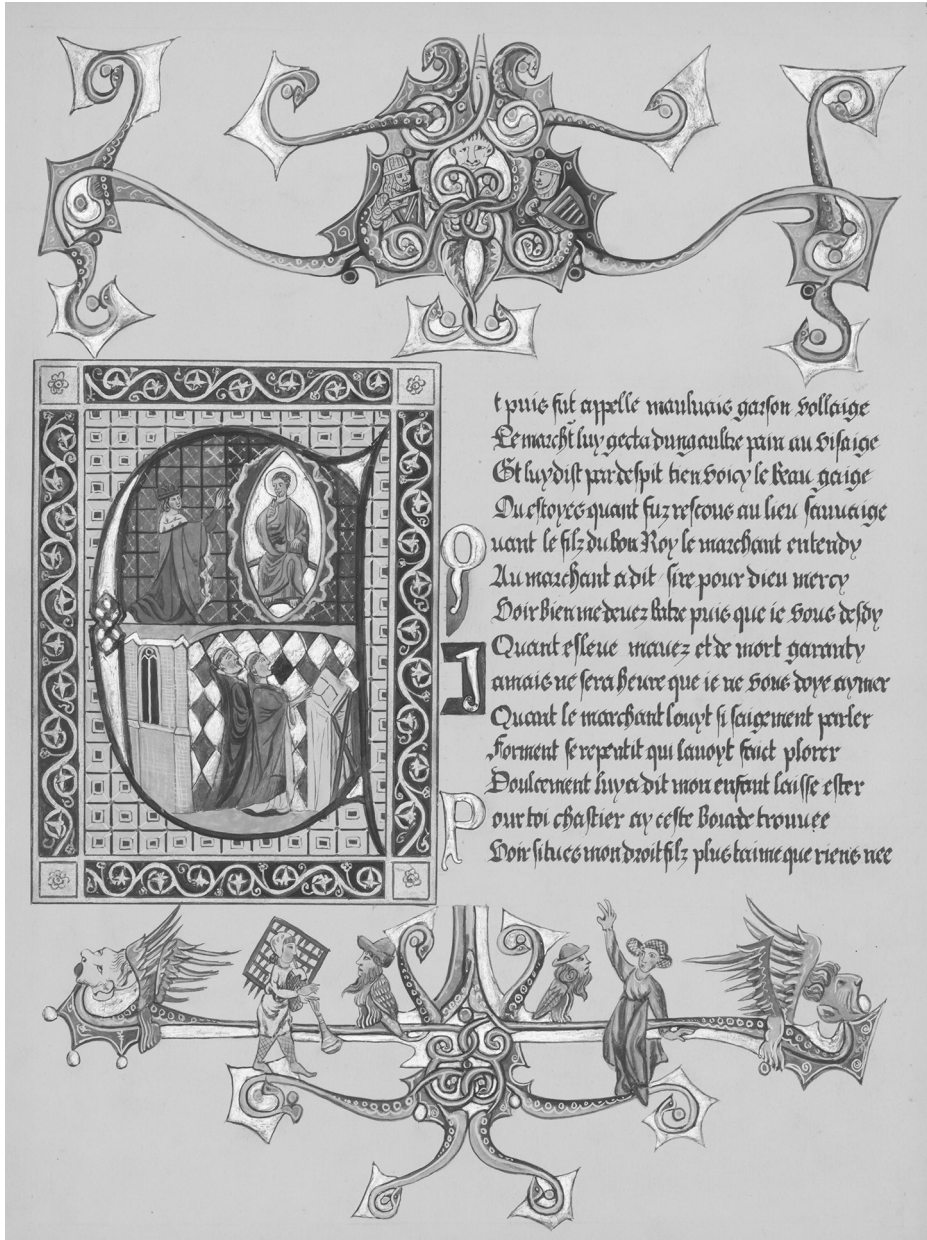 Et puis fut appelle mauluais garson vollaige
Le marcht luy gecta dung aultre pain au visaige
Et luy dist par despit tien voicy le beau gaige
Ou estoyes quant fuz rescous au lieu sauuaige
Quant le filz du bon Roy le marchant entendy
Au marchant a dit sire pour dieu mercy
Voir bien me deuez batre puis que ie vous desdy
Quant esleue mauez et de mort garanty
Jamais ne sera heure que ie ne vous doye aymer
Quant le marchant louyt si saigement parler
Forment se repentit qui lauoyt faict plorer
Doulcement luy a dit mon enfant laisse ester
Pour toi chastier ay ceste trouuee
Voir si tu es mon droit filz plus taime que riens nee